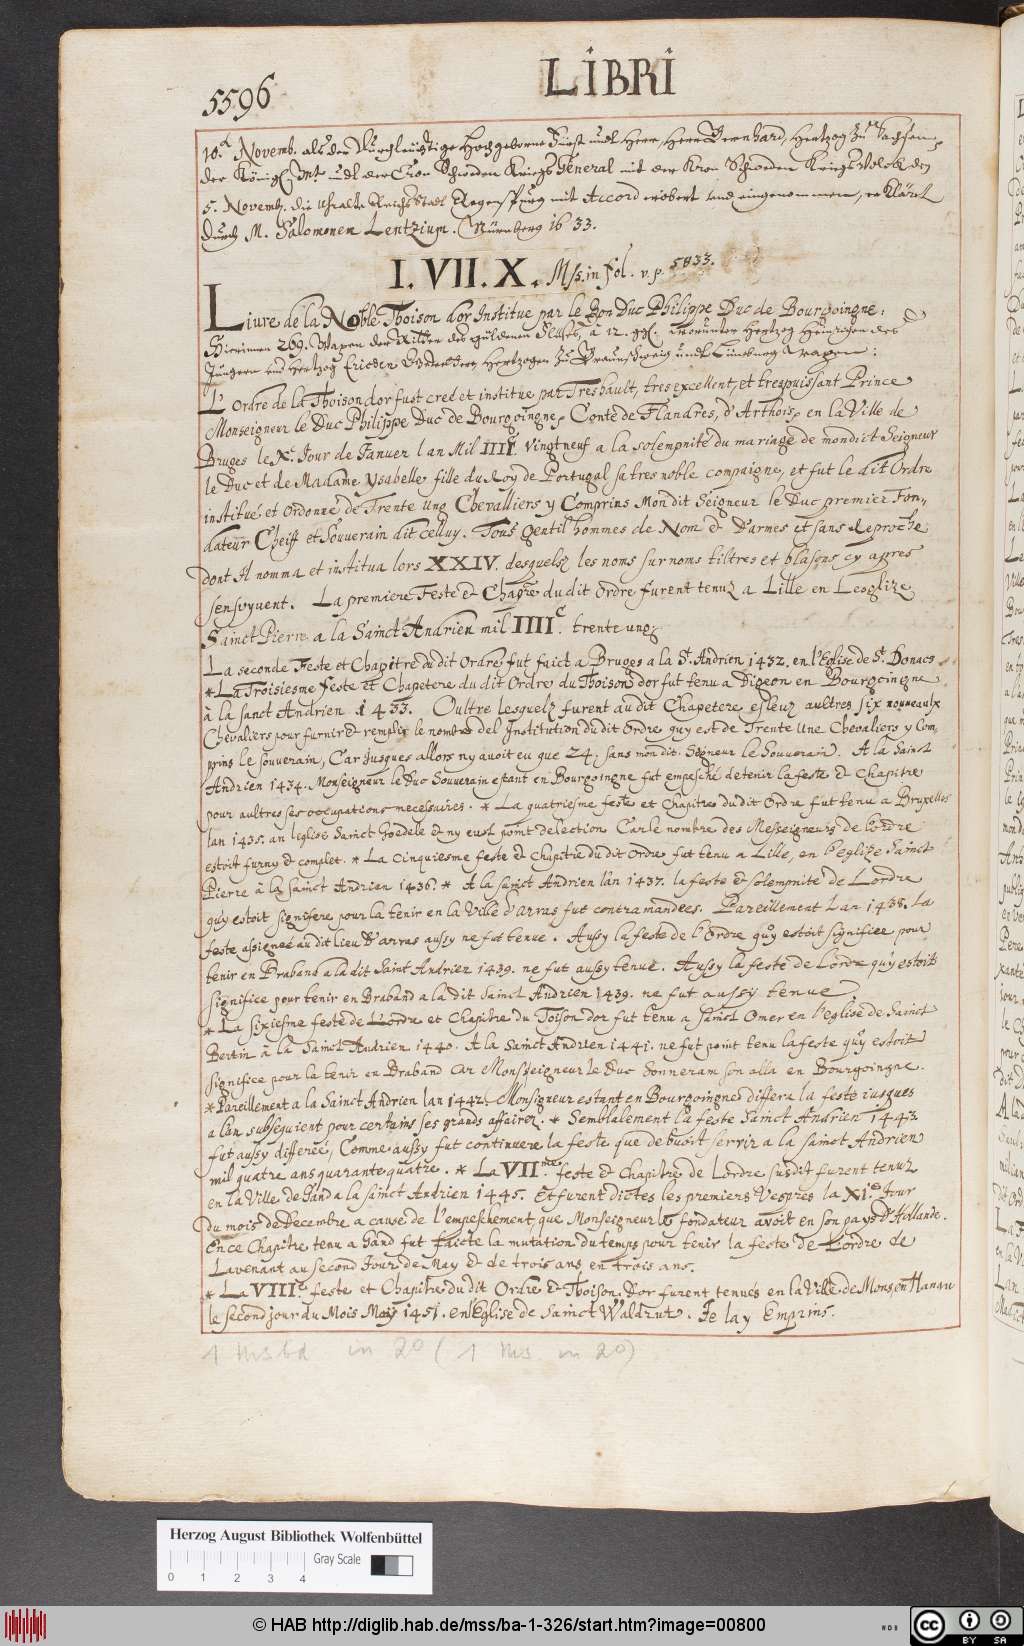 LIBRI
5596
10.t Novemb. als der Durchleuchtige Hochgeborne Fürst undt Herr, Herr Bernhard, Hertzog Zu Sachsen,
der Königl. Mt. undt der Cron Schweden Kriegs General mit der Kron Schweden Kriegs Volck den
5. Novemb. die uhralte Reichs Stadt Regenspurg mit Accord erobert und eingenommen, erklärt
durch M. Salomonem Lentzium. Nürnberg 1633.
I. VII. X. Mss. in fol. v. p. 5833.
Livre de la Noble Thoison dor Institue par le Bon Duc Philippe Duc de Bourgoingne.
Hierinnen 269. Wapen der Ritter des güldenen Flüses, à 12. ggl. Worunter Hertzog Heinrichen des
Jüngern und Hertzog Erichen Hertzogen Zu Braunschweig undt Lüneburg Wapen:
L'Ordre de la Thoison dor fust creé et institue par Treshault, tres excellent, et trespuissant Prince
Monseigneur le Duc Philippe Duc de Bourgoingne, Conte de Flandres, d'Arthois, en la Ville de
Bruges le X.e Jour de Januer lan Mil IIII.c Vingtneuf a la solempnité du mariage de mondict Seigneur
le Duc et de Madame Ysabelle fille du Roy de Portugal sa tres noble compaigne, et fut le dit Ordre
institué et Ordonné de Trente ung Chevalliers y Comprins Mondit Seigneur le Duc premier Fon,,
dateur Cheiff et Souverain dit celluy. Tous gentil hommes de Nom et D'armes et sans Reproche
dont Il nomma et institua lors XXIV. desquelz les noms surnoms tiltres et blasons cy apres
sensvyuent. La premiere Feste et Chapitre du dit Ordre furent tenuz a Lille en Leoglize
Sainct Pierre a la Sainct Andrien mil IIII.C trente ung.
La seconde Feste et Chapitre du dit Ordre fut faict a Bruges a la St. Andrien 1432. en l'Eglise de St. Donacs
* La Troisiesme feste et Chapetere du dit Ordre du Thoison dor fut tenu a Digeon en Bourgoingne
à la sanct Andrien 1433. Oultre lesquelz furent au dit Chapetere esleuz aultres six nouueaulx
Chevaliers pour furnir et remplir le nombre del Institution du dit Ordre quy est de Trente Une Chevaliers y Com,
prins le souverain, Car Jusques allors ny auoit eu que 24, sans mondit Segneur le Souverain. A la Saint
Andrien 1434. Monseigneur le Duc Souverain estant en Bourgoingne fut empesché de tenir la feste et Chapitre
pour aultres ses occupations necessaires. * La quatriesme feste et Chapitre du dit Ordre fut tenu a Bruxelles
lan 1435. an leglise Sainct Goedele et ny eust point delection Car le nombre des Messeigneurs de l'ordre
estoit furny et complet. * La Cinquiesme feste et Chapitre du dit Ordre fut tenu a Lille, en l'eglize Sainct
Pierre à la Sainct Andrian 1436. * A la sainct Andrien lan 1437. la feste et solempnité de Lordre
quy estoit signifiee pour la tenir en la Ville d'arras fut contramandees. Pareillement Lan 1438. La
feste assignee au dit lieu d'arras aussy ne fut tenue. Aussy la feste de l'Ordre quy estoit signifiee pour
tenir en Braband a la dit Saint Andrien 1439. ne fut aussy tenue. Aussy la feste de Lordre quy estoit
signifiée pour tenir en Braband a la dit Sainct Andrien 1439. ne fut aussy tenue
* La sixiesme feste de Lordre et Chapitre du Toison dor fut tenu a sainct Omer en l'eglise de Sainct
Bertin à la Sainct Andrien 1440. A la Sainct Andrien 1441. ne fut point tenu la feste quy estoit
signifiee pour la tenir en Braband Car Monsseigneur le Duc son alla en Bourgoingne.
* Pareillement a la Sainct Andrien lan 1442. Monsigneur estant en Bourgoingne differa la feste jusques
a lan subsequient pour certains ses grands affaires. * Semblalement la feste Sainct Andrien 1443
fut aussy differeé, Comme aussy fut continuere la feste que debuoit servir a la sainct Andrien
mil quatre ans quarante quatre. * La VII.me feste et Chapitre de Lordre susdit furent tenuz
en la Ville de Gand a la sainct Andrien 1445. Et furent dictes les premiers Vespres la XI.e Jour
du mois de Decembre a cause de l'empeschement, que Monseigneur le fondateur avoit en son pays d'Hollande.
En ce Chapitre tenu a Gand fut faicte la mutation du temps pour tenir la feste de Lordre de
Lavenant au second Jour de May et de trois ans en trois ans.
* La VIII.e feste et Chapitre du dit Ordre et Thoison Dor furent tenues en la Ville de Mons en Hanau
le second jour du Mois May 1451. en l'Eglise de Sainct Waldrut. Je lay Emprins.
1 Ms bd in 2° (1 Ms in 2°)
Herzog August Bibliothek Wolfenbüttel
Gray Scale
0 1 2 3 4
© HAB http://diglib.hab.de/mss/ba-1-326/start.htm?image=00800
WDB
cc BY SA